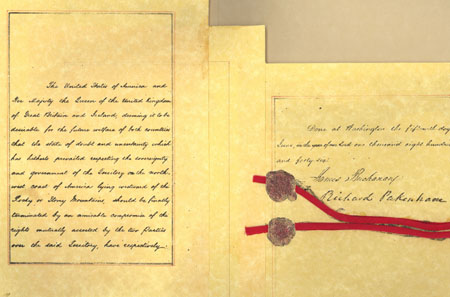 The United States of America and
Her Majesty the Queen of the United Kingdom
of Great Britain and Ireland, deeming it to be
desirable for the future welfare of both countries
that the state of doubt and uncertainty which
has hitherto prevailed respecting the sovereignty
and government of the Territory on the north-
west coast of America lying westward of the
Rocky or Stony Mountains, should be finally
terminated by an amicable compromise of the
rights mutually asserted by the two parties
over the said Territory, have respectively
Done at Washington the fifteenth day
June, in the year of our Lord one thousand eight hundred
and forty-six.
James Buchanan
Richard Pakenham